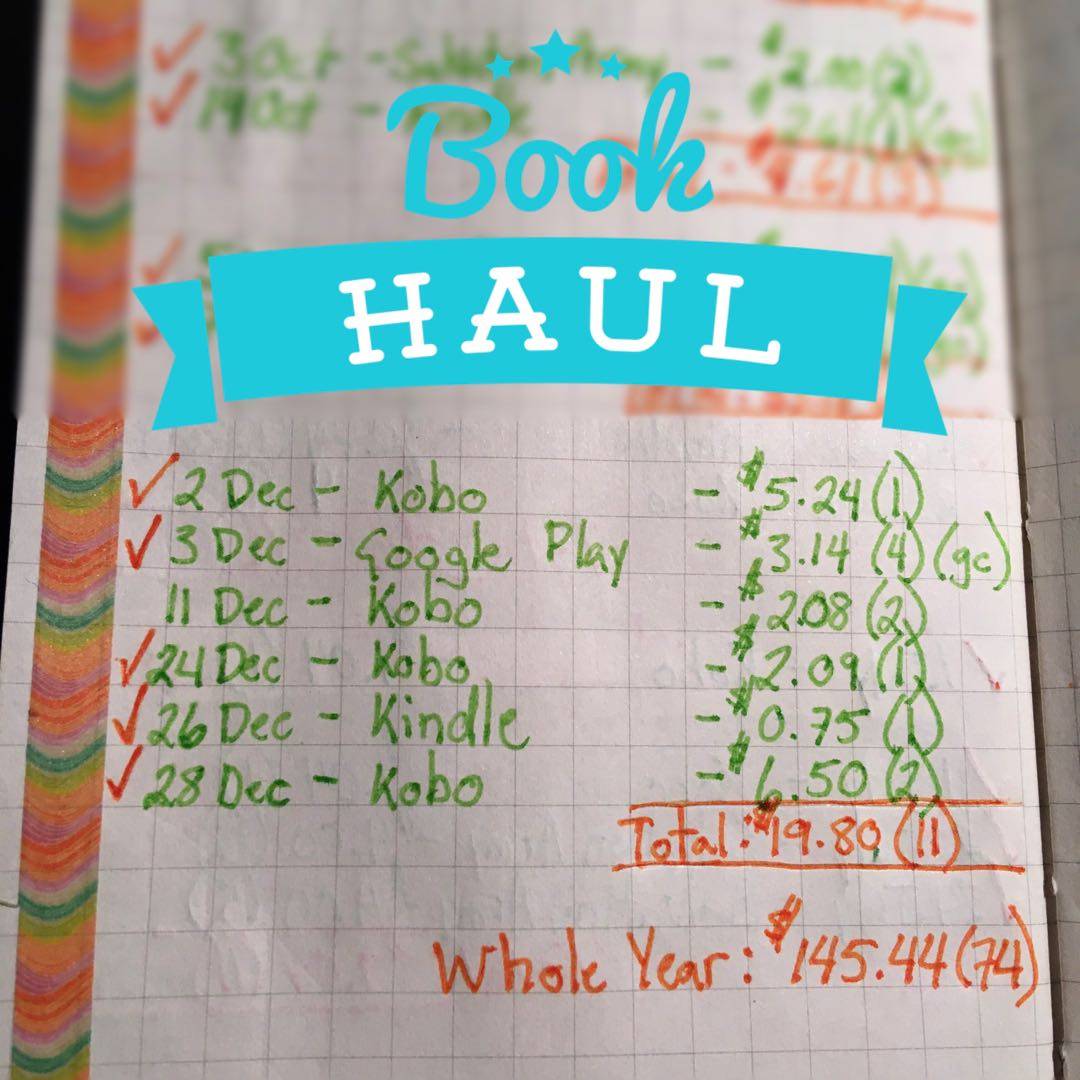 ✓ 3 Oct - - $2.00 (2)
✓ 19 Oct - - $2.61 (1)
$4.61 (3)
Book
HAUL
✓ 2 Dec - Kobo - $5.24 (1)
✓ 3 Dec - Google Play - $3.14 (4) (gc)
11 Dec - Kobo - $2.08 (2)
✓ 24 Dec - Kobo - $2.09 (1)
✓ 26 Dec - Kindle - $0.75 (1)
✓ 28 Dec - Kobo - $6.50 (2)
Total: $19.80 (11)
Whole Year: $145.44 (74)